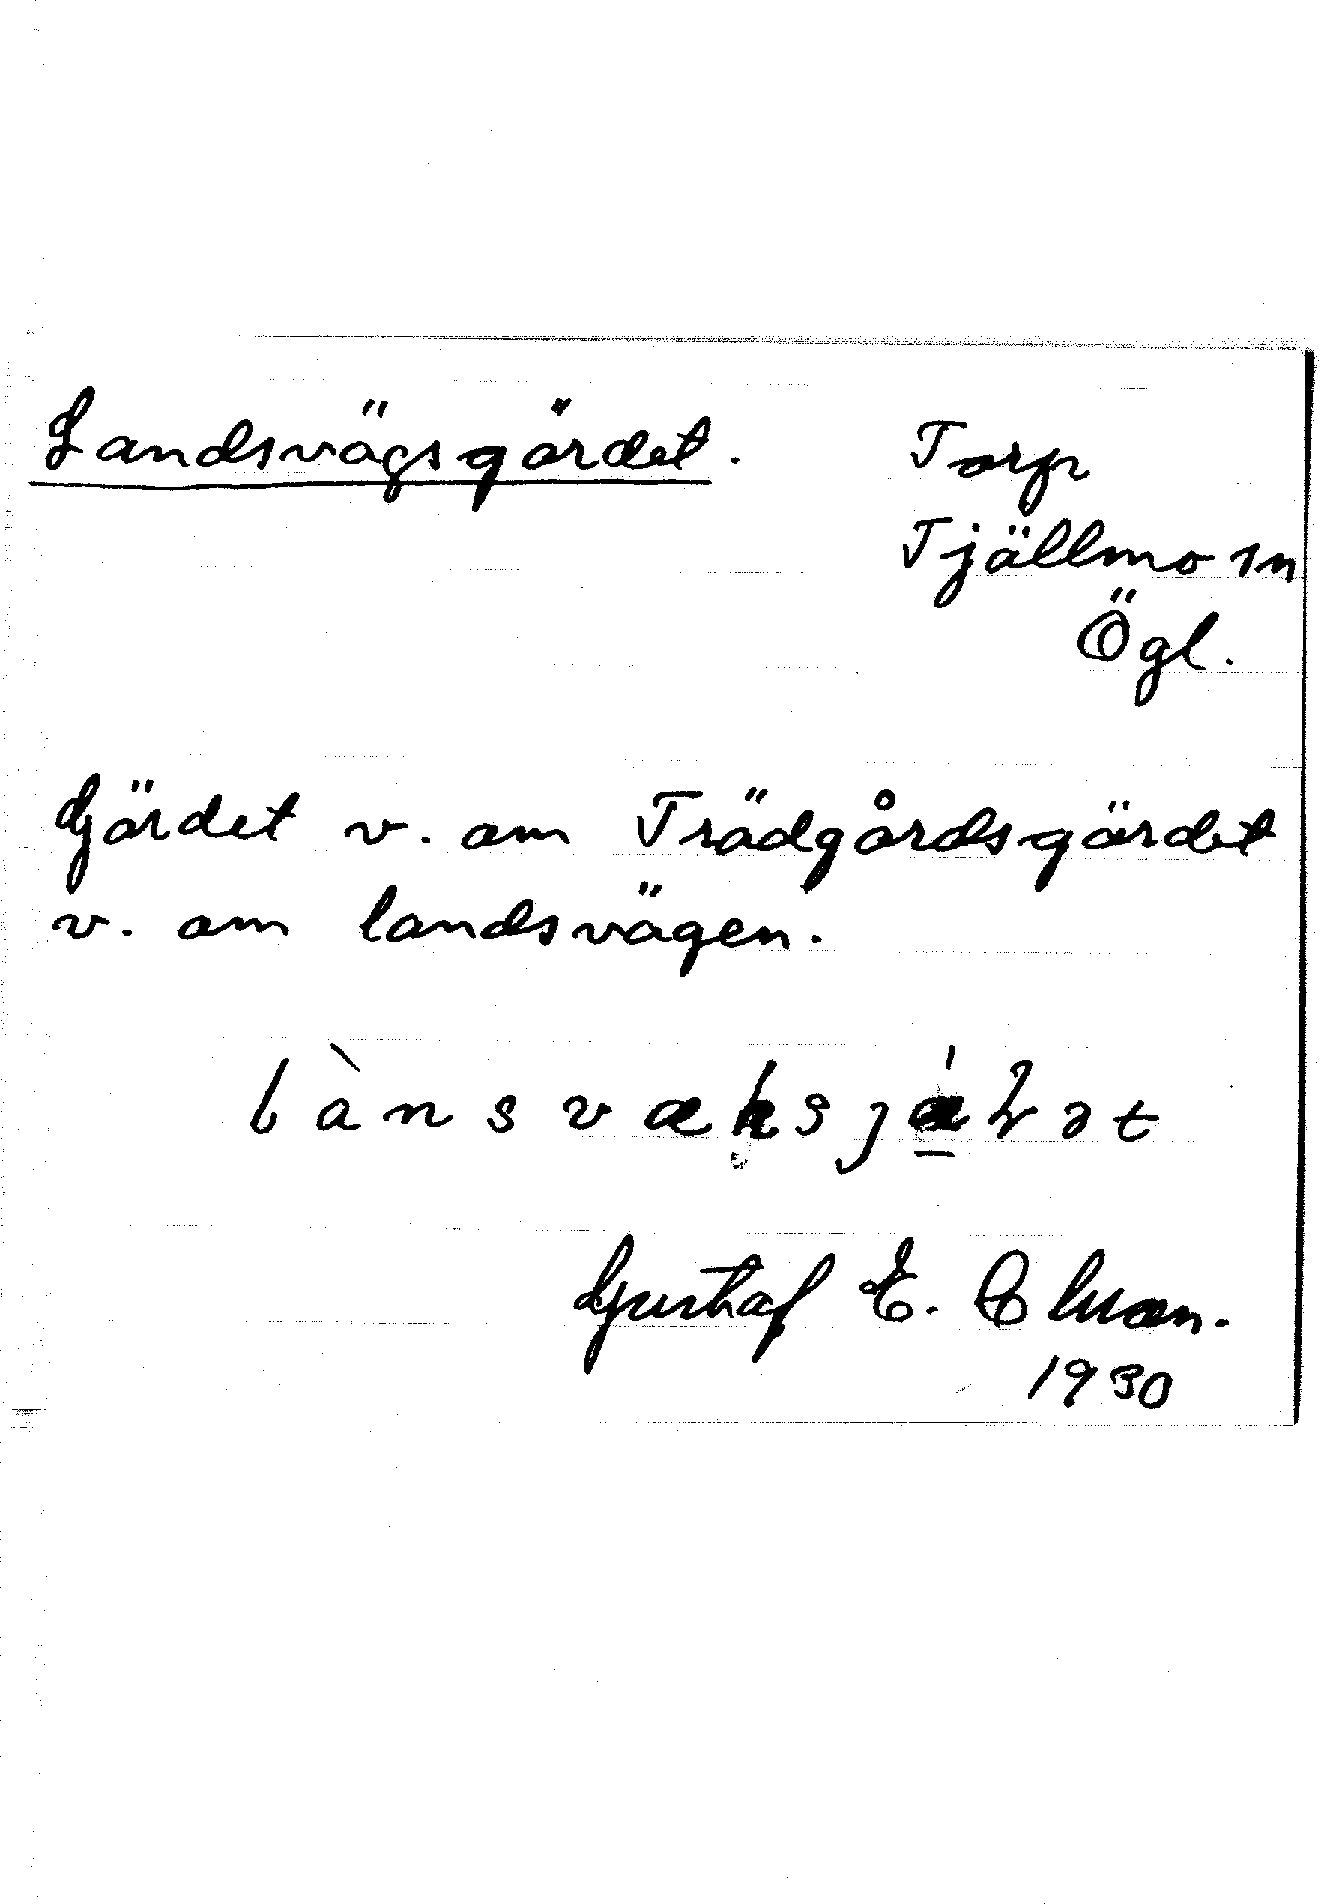 Landsvägsgärdet.
Torp
Tjällmo sn
Ögl.
Gärdet v. om Trädgårdsgärdet
v. om landsvägen.
lànsvæksjǽ̱ɖət
Gustaf E.
1930